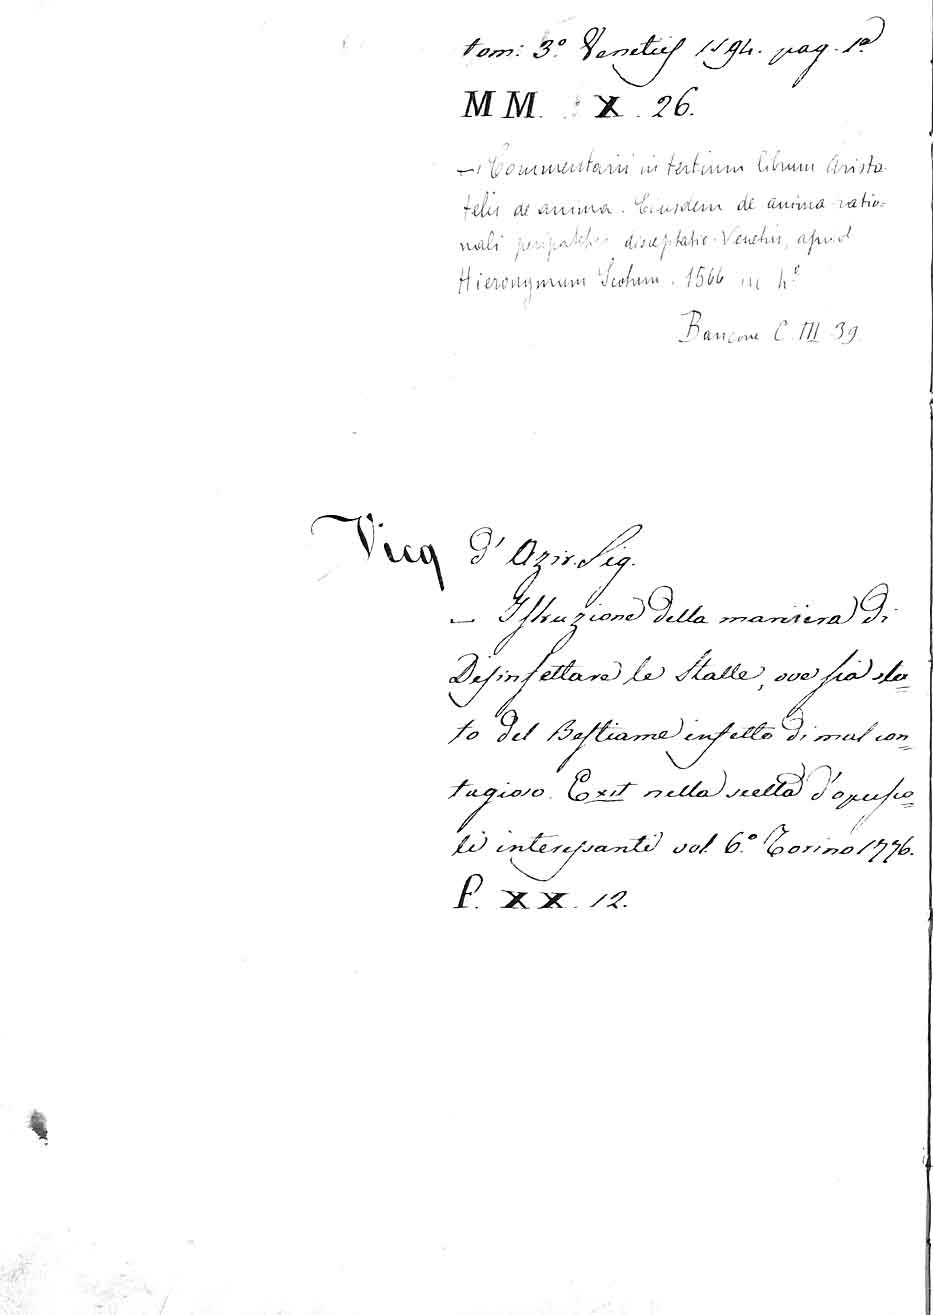 tom: 3.º Venetiis 1594. pag. 1ª
MM. X. 26.
— Commentarii in tertium librum Aristo-
telis de anima. Eiusdem de anima ratio-
nali peripatetica disceptatio. Venetiis, apud
Hieronymum Scotum. 1566 in 4º
Bancone C. III 39.
Vicq d' Azir. Sig.
— Istruzione della maniera di
Disinfettare le Stalle, ove sia sta=
to del Bestiame infetto di mal con=
tagioso. Exit nella scelta d'opusco=
li interessanti vol. 6.º Torino 1776.
P. XX. 12.